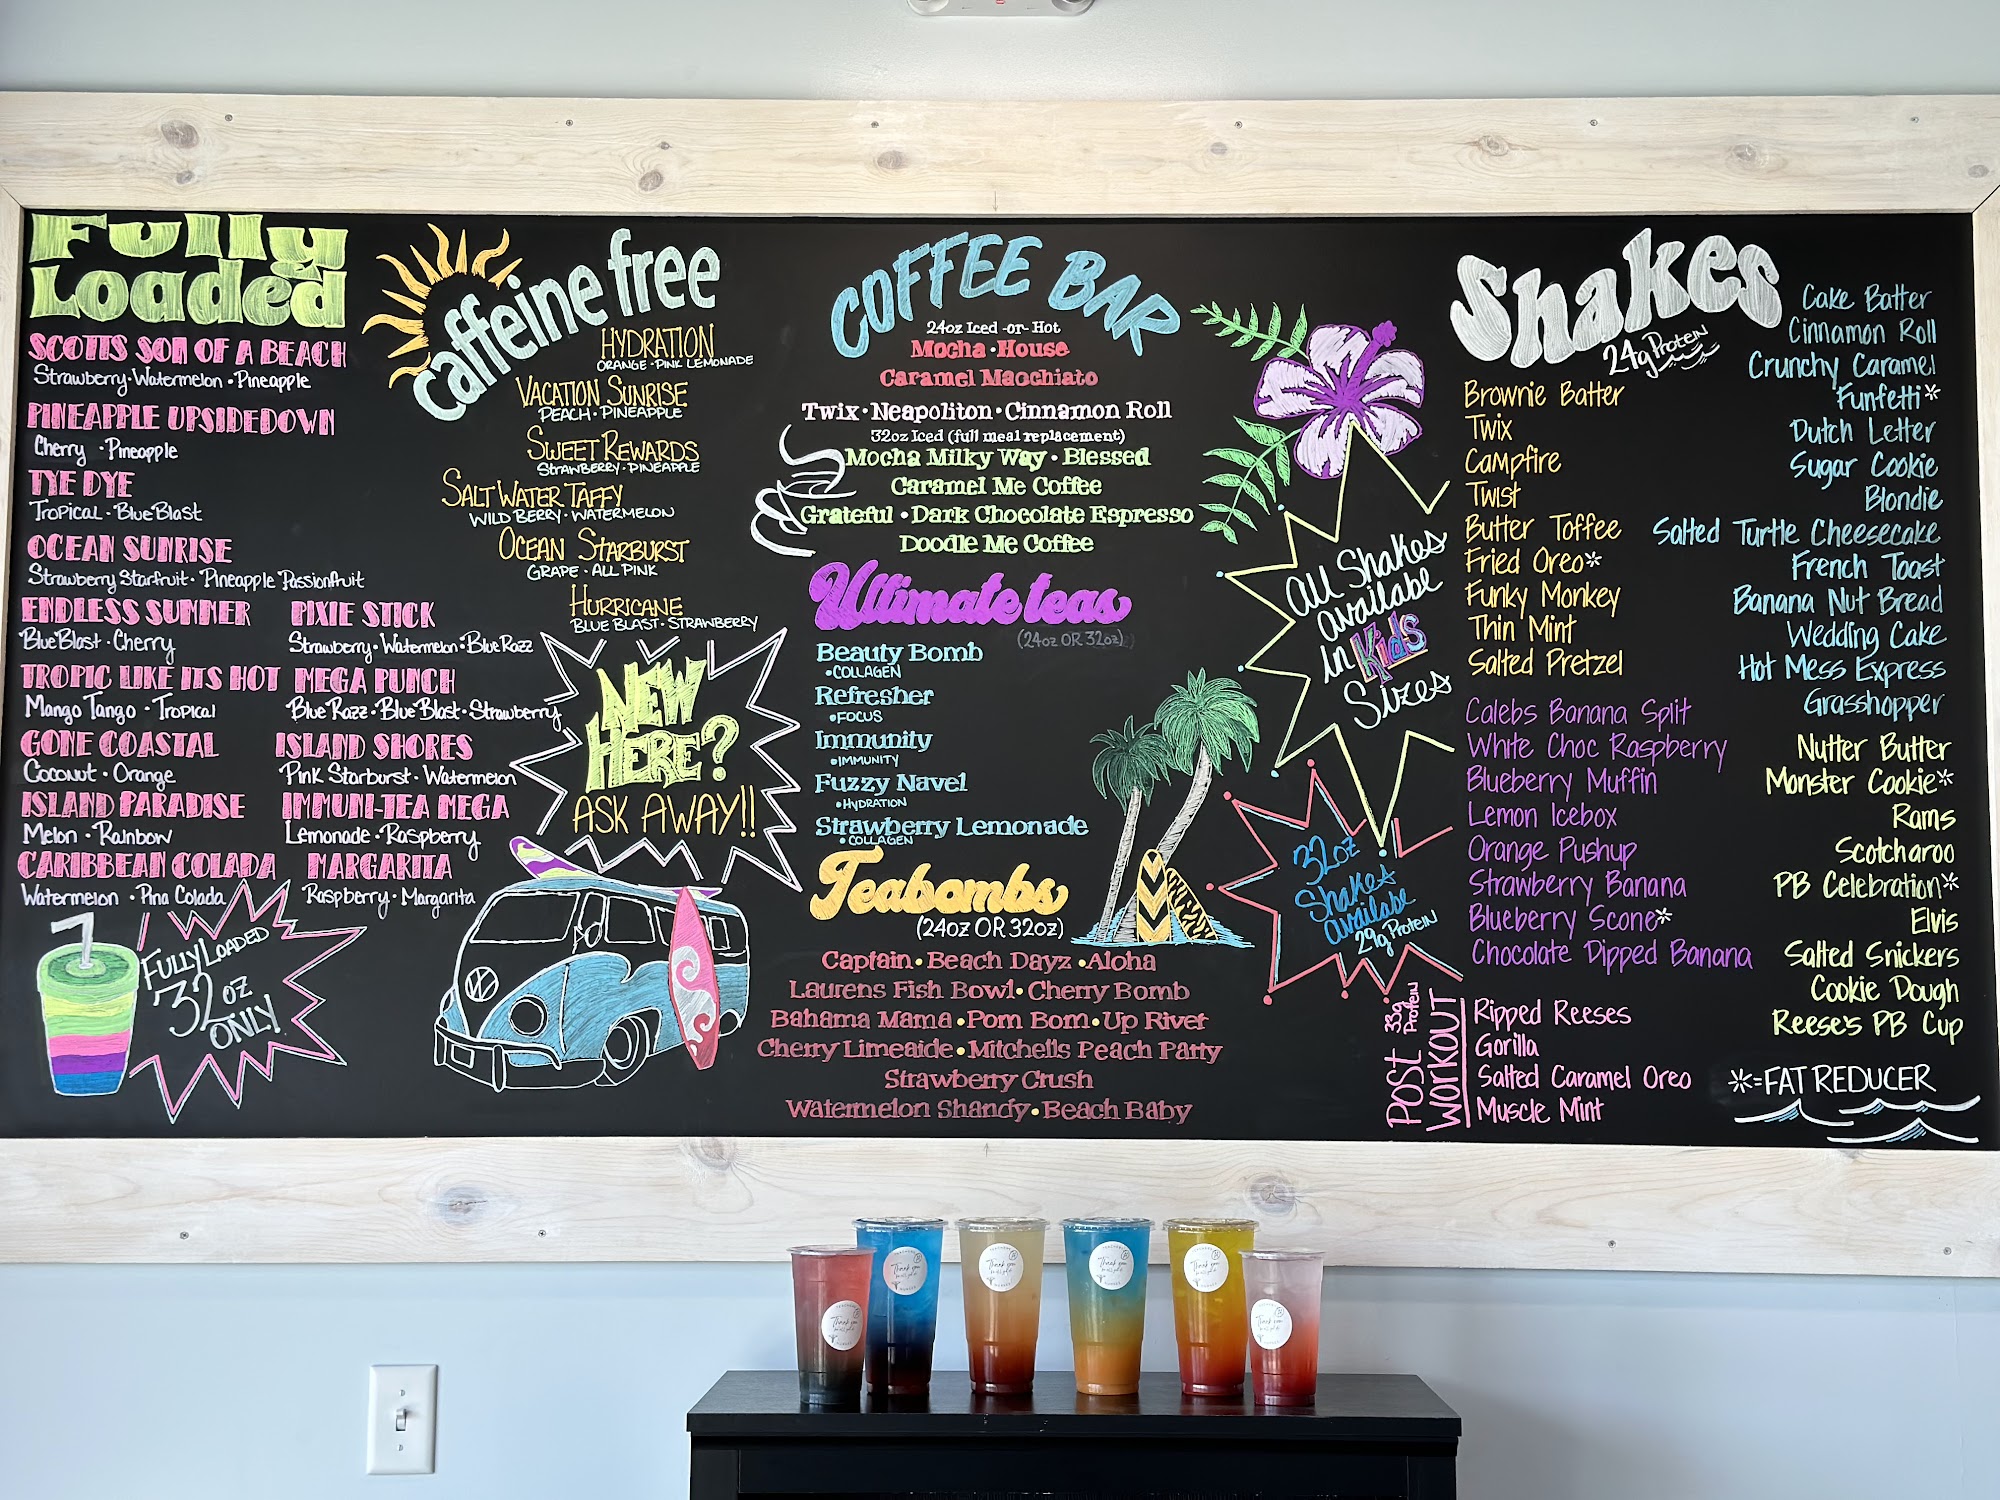 Fully
Loaded
SCOTTS SON OF A BEACH
Strawberry • Watermelon • Pineapple
PINEAPPLE UPSIDEDOWN
Cherry • Pineapple
TYE DYE
Tropical • Blue Blast
OCEAN SUNRISE
Strawberry Starfruit • Pineapple Passionfruit
ENDLESS SUMMER
Blue Blast • Cherry
TROPIC LIKE ITS HOT
Mango Tango • Tropical
GONE COASTAL
Coconut • Orange
ISLAND PARADISE
Melon • Rainbow
CARIBBEAN COLADA
Watermelon • Pina Colada
PIXIE STICK
Strawberry • Watermelon • Blue Razz
MEGA PUNCH
Blue Razz • Blue Blast • Strawberry
ISLAND SHORES
Pink Starburst • Watermelon
IMMUNI-TEA MEGA
Lemonade • Raspberry
MARGARITA
Raspberry • Margarita
FULLY LOADED
32 oz
ONLY
caffeine free
HYDRATION
ORANGE • PINK LEMONADE
VACATION SUNRISE
PEACH • PINEAPPLE
SWEET REWARDS
STRAWBERRY • PINEAPPLE
SALT WATER TAFFY
WILD BERRY • WATERMELON
OCEAN STARBURST
GRAPE • ALL PINK
HURRICANE
BLUE BLAST • STRAWBERRY
NEW
HERE?
ASK AWAY!!
COFFEE BAR
24oz Iced -or- Hot
Mocha • House
Caramel Maochiato
Twix • Neapoliton • Cinnamon Roll
32oz Iced (full meal replacement)
Mocha Milky Way • Blessed
Caramel Me Coffee
Grateful • Dark Chocolate Espresso
Doodle Me Coffee
Ultimate teas
(24oz OR 32oz)
Beauty Bomb
• COLLAGEN
Refresher
• FOCUS
Immunity
• IMMUNITY
Fuzzy Navel
• HYDRATION
Strawberry Lemonade
• COLLAGEN
Teabombs
(24oz OR 32oz)
Captain • Beach Dayz • Aloha
Laurens Fish Bowl • Cherry Bomb
Bahama Mama • Pom Bom • Up River
Cherry Limeaide • Mitchells Peach Party
Strawberry Crush
Watermelon Shandy • Beach Baby
All Shakes
available
in Kids
Sizes
32oz
Shakes
available
29g Protein
Shakes
24g Protein
Brownie Batter
Twix
Campfire
Twist
Butter Toffee
Fried Oreo*
Funky Monkey
Thin Mint
Salted Pretzel
Calebs Banana Split
White Choc Raspberry
Blueberry Muffin
Lemon Icebox
Orange Pushup
Strawberry Banana
Blueberry Scone*
Chocolate Dipped Banana
POST WORKOUT
33g Protein
Ripped Reeses
Gorilla
Salted Caramel Oreo
Muscle Mint
Cake Batter
Cinnamon Roll
Crunchy Caramel
Funfetti*
Dutch Letter
Sugar Cookie
Blondie
Salted Turtle Cheesecake
French Toast
Banana Nut Bread
Wedding Cake
Hot Mess Express
Grasshopper
Nutter Butter
Monster Cookie*
Rams
Scotcharoo
PB Celebration*
Elvis
Salted Snickers
Cookie Dough
Reese's PB Cup
*=FAT REDUCER
Thank you
Thank you
Thank you
Thank you
Thank you
Thank you